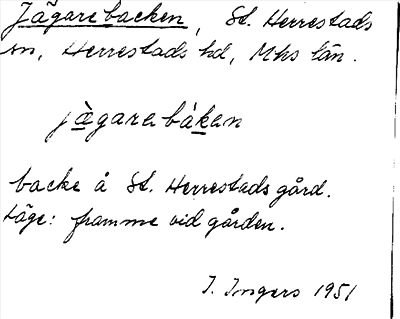 Jägarebacken, St. Herrestads
sn, Herrestads hd, Mhs län.
jägarabákan
backe å St. Herrestads gård.
Läge: framme vid gården.
I. Ingers 1951